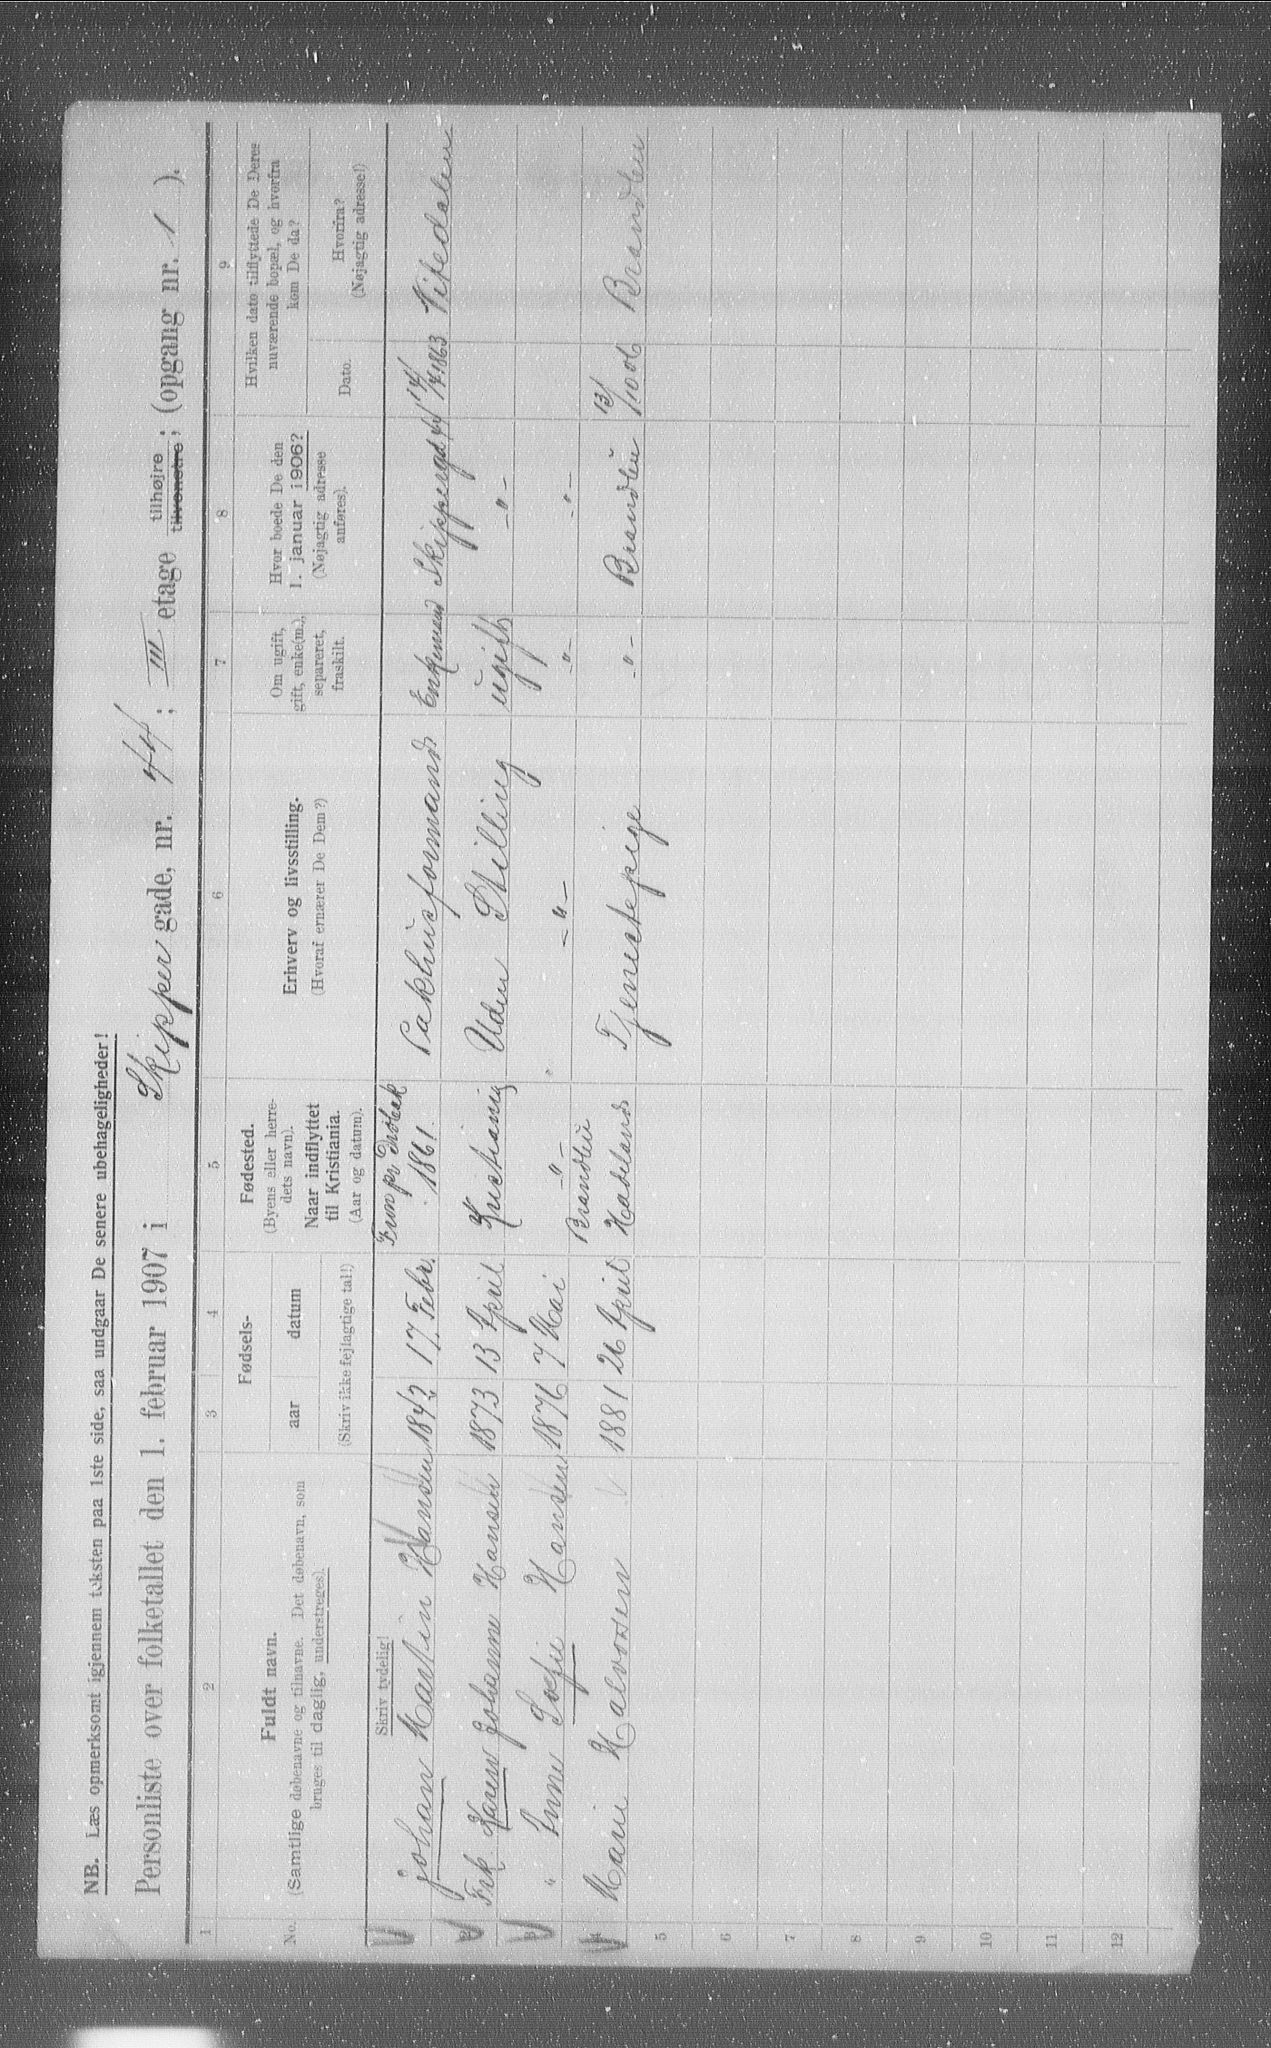 NB. Læs opmerksomt igjennem teksten paa 1ste side, saa undgaar De senere ubehageligheder!
Personliste over folketallet den 1. februar 1907 i Skipper gade, nr. 44; III etage tilhøjre tilvenstre; (opgang nr. 1 ).
1 2 3 4 5 6 7 8 9
No.
Fuldt navn.
(Samtlige døbenavne og tilnavne. Det døbenavn, som
bruges til daglig, understreges).
Fødsels-
aar datum
(Skriv ikke fejlagtige tal!)
Fødested.
(Byens eller herre-
dets navn).
Naar indflyttet
til Kristiania.
(Aar og datum).
Erhverv og livsstilling.
(Hvoraf ernærer De Dem?)
Om ugift,
gift, enke(m.),
separeret,
fraskilt.
Hvor boede De den
1. januar 1906?
(Nøjagtig adresse
anføres).
Hvilken dato tilflyttede De Deres
nuværende bopæl, og hvorfra
kom De da?
Dato.
Hvorfra?
(Nøjagtig adresse!)
Skriv tydelig!
Johan Martin Hansen 1842 17 Febr. 1861. Pakhusformand Enkemand Skippergd 44 1863
2 Frk. Karen Johanne Hansen 1873 13 April Kristiania Uden Stilling ugift -"-
3 " Anne Sofie Hansen 1876 7 Mai -"- -"- -"- -"-
4 Marie Halvorsen 1881 26 April Brandbu Hadeland Tjenestepige -"- Brandbu 13/10 06 Brandbu
5
6
7
8
9
10
11
12